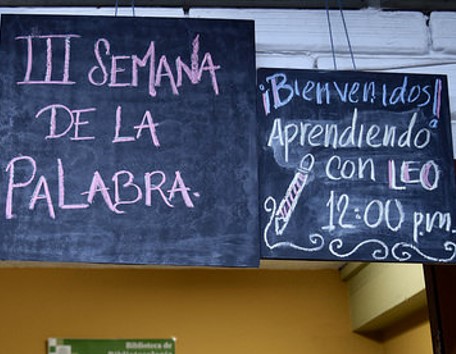 III SEMANA
DE LA
PALABRA.
¡Bienvenidos!
Aprendiendo
con LEO
12:00 p.m.
Biblioteca de
Bibliotecología